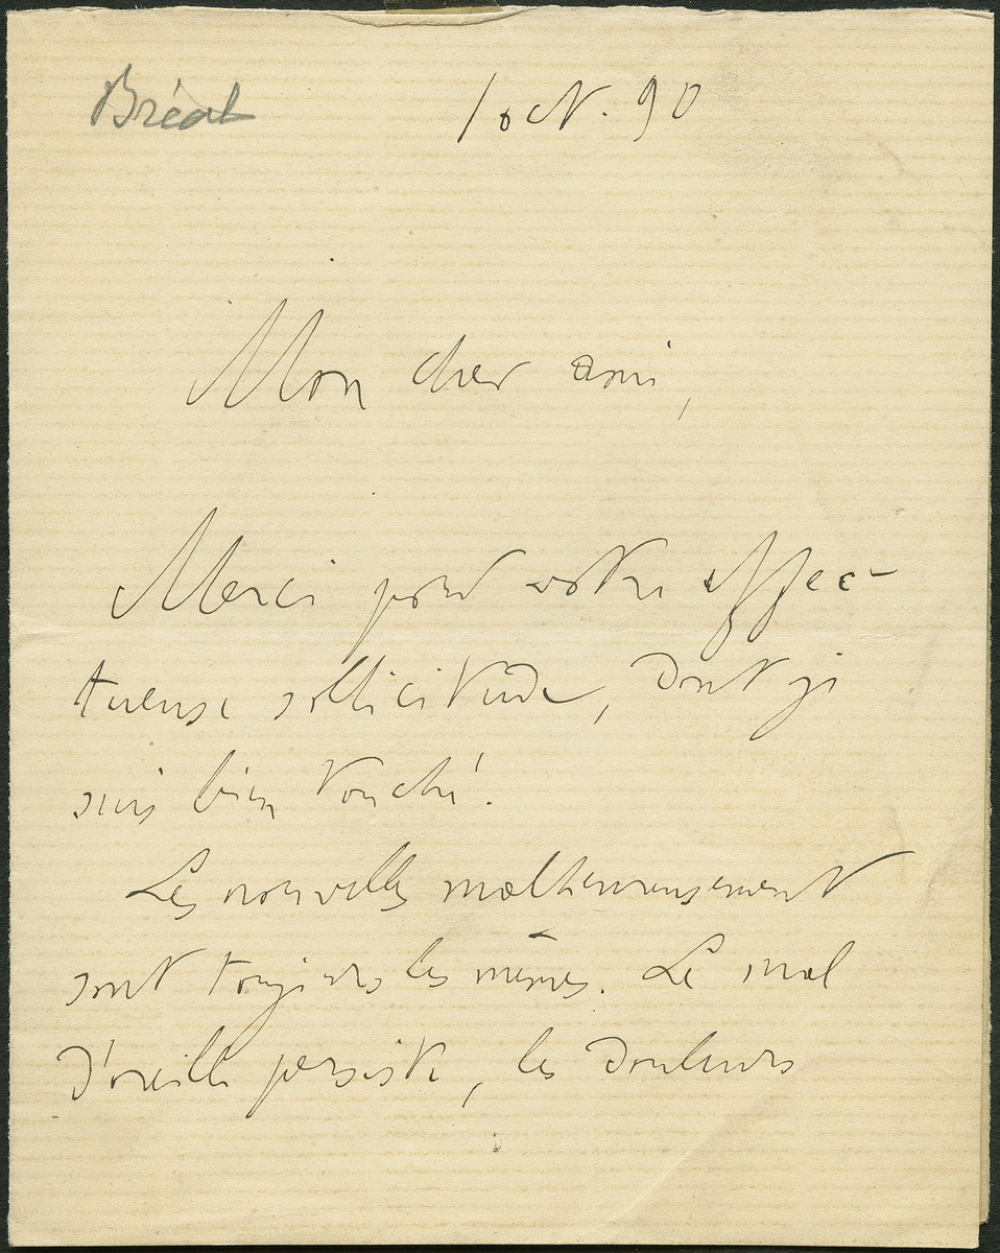 Bréal
1 oct. 90
Mon cher ami,
Merci pour votre affec-
tueuse sollicitude, dont je
suis bien touché.
Les nouvelles malheureusement
sont toujours les mêmes. Le mal
d'oreille persiste, les douleurs